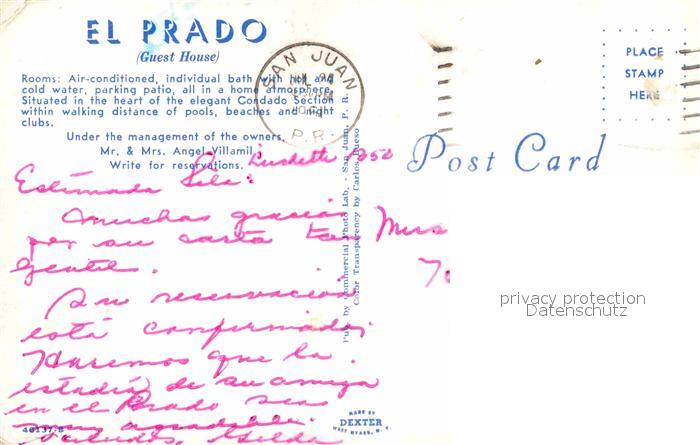 EL PRADO
(Guest House)
Rooms: Air-conditioned, individual bath with hot and
cold water, parking patio, all in a home atmosphere.
Situated in the heart of the elegant Condado Section
within walking distance of pools, beaches and night
clubs.
Under the management of the owners,
Mr. & Mrs. Angel Villamil
Write for reservations.
SAN JUAN
P.R.
PLACE
STAMP
HERE
Post Card
Estimada
Muchas gracias
por su carta tan
gentil.
Su reservación
está confirmada;
Haremos que la
estadía de su amiga
en el Prado sea
muy agradable.
Saludos, Gilda
Pub. by Commercial Photo Lab. - San Juan, P. R.
Color Transparency by Carlos Bueso
privacy protection
Datenschutz
40137-B
MADE BY
DEXTER
WEST NYACK, N. Y.